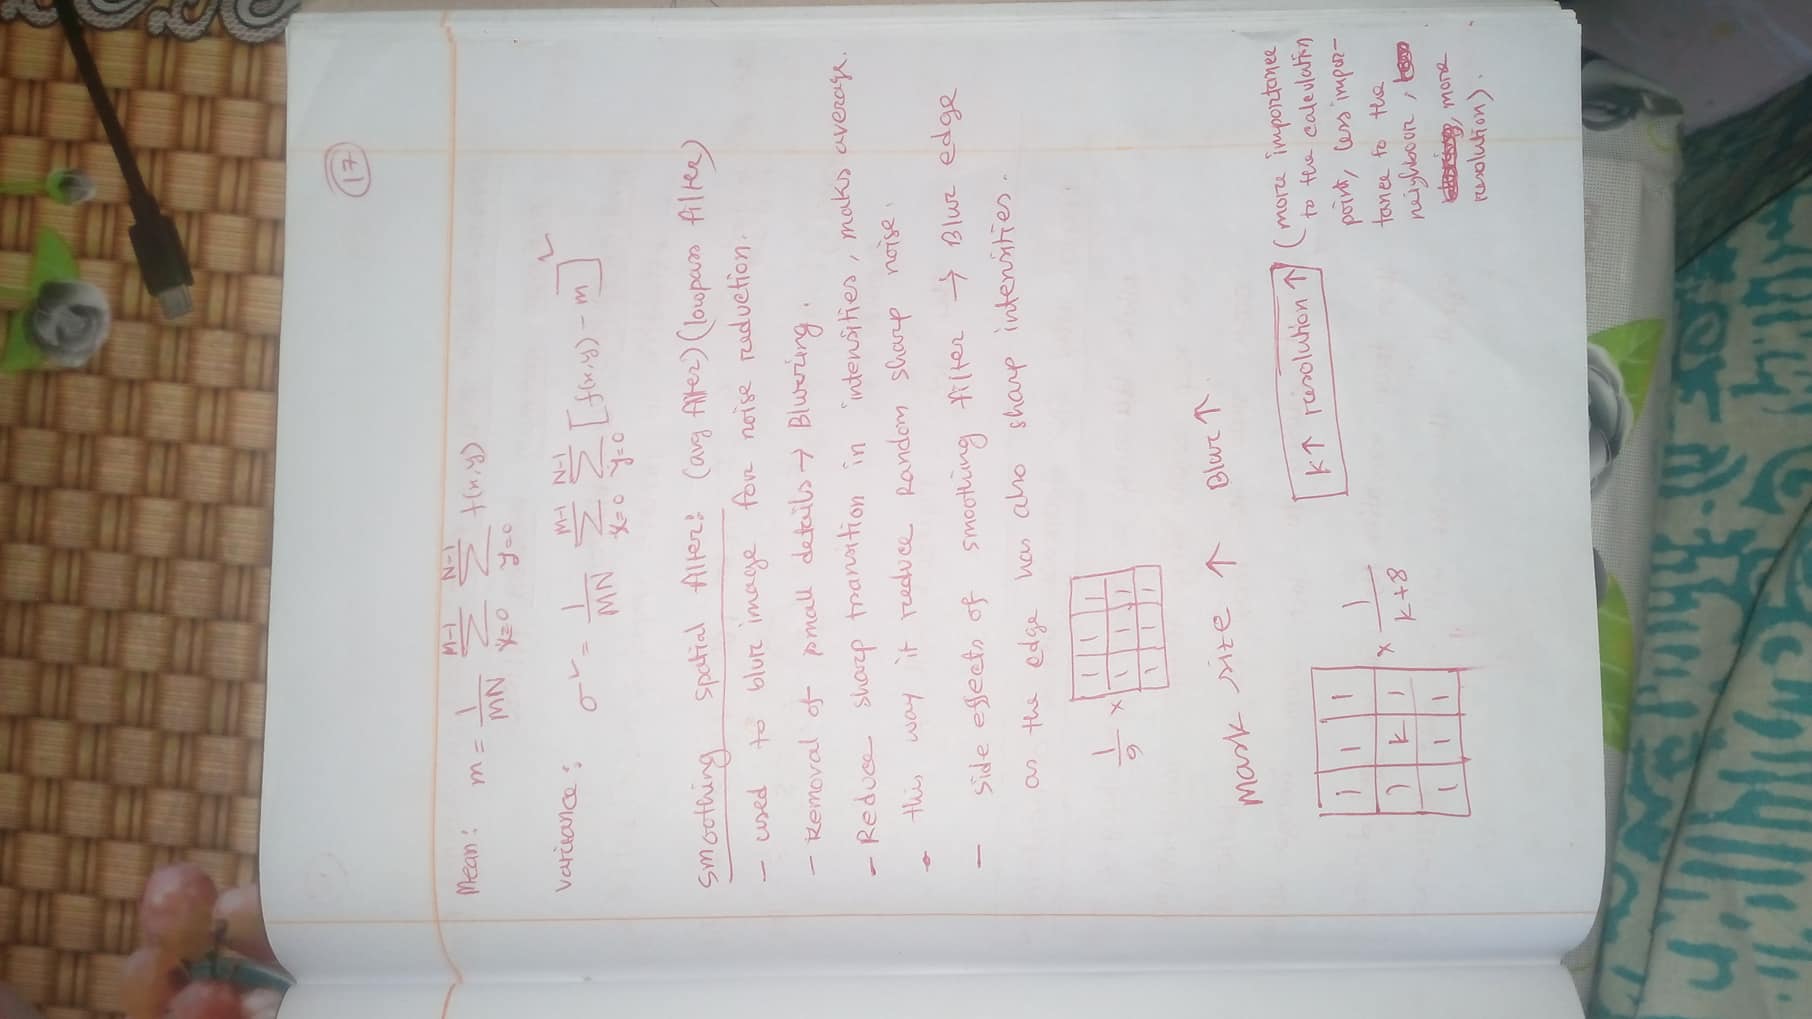 17
Mean: m = 1/MN M-1 Σ x=0 N-1 Σ y=0 f(x,y)
Variance: σ² = 1/MN M-1 Σ x=0 N-1 Σ y=0 [f(x,y) - m]²
Smoothing spatial filter: (avg filter) (lowpass filter)
- used to blur image for noise reduction.
- Removal of small details → Blurring.
- Reduce sharp transition in intensities, makes average.
- this way it reduce random sharp noise.
- side effects of smoothing filter → Blur edge
as the edge has also sharp intensities.
1/9 ×
1 1 1
1 1 1
1 1 1
Mask size ↑ Blur ↑.
1 1 1
1 k 1
1 1 1
× 1/k+8
k↑ resolution ↑
(more importance
to the calculation
point, less impor-
tance to the
neighbour,
, more
resolution).